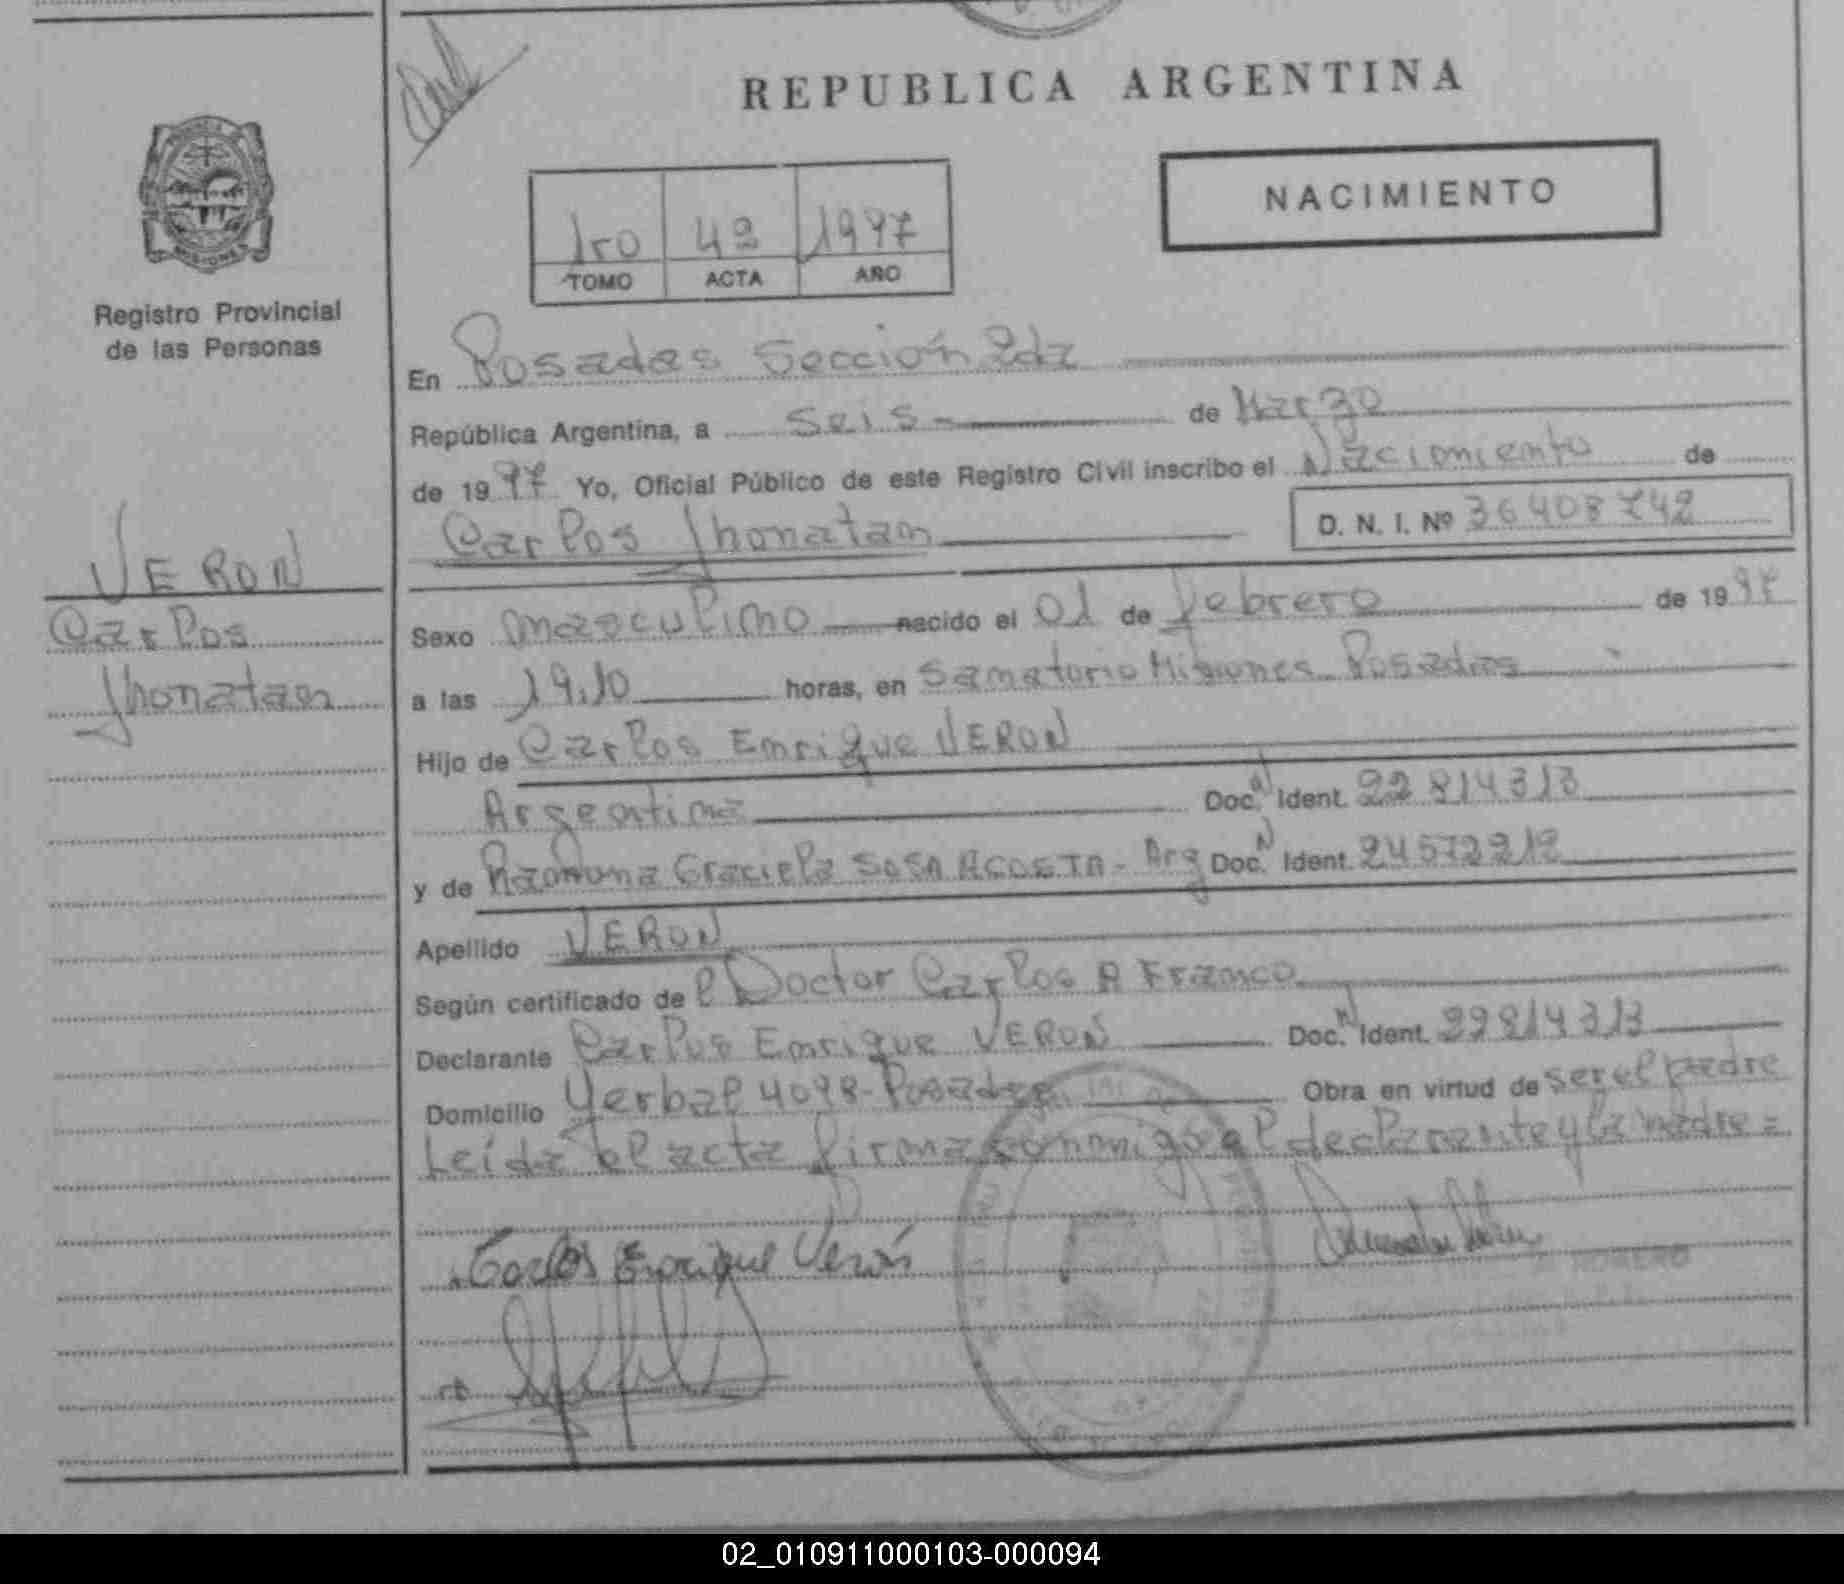 REPUBLICA ARGENTINA
NACIMIENTO
1ro 42 1997
TOMO ACTA AÑO
Registro Provincial
de las Personas
VERON
Carlos
Jhonatan
En Posadas Sección 2da
República Argentina, a seis de Marzo
de 1997 Yo, Oficial Público de este Registro Civil inscribo el Nacimiento de
Carlos Jhonatan D. N. I. Nº 36408742
Sexo masculino nacido el 01 de Febrero de 1997
a las 19.10 horas, en Sanatorio Misiones Posadas
Hijo de Carlos Enrique VERON
Argentina Doc. N Ident. 22814313
y de Ramona Graciela SOSA ACOSTA - Arg Doc. N Ident. 24572212
Apellido VERON
Según certificado del Doctor Carlos A Franco
Declarante Carlos Enrique VERON Doc. N Ident. 22814313
Domicilio Yerbal 4098 - Posadas Obra en virtud de ser el padre
Leída el acta firma conmigo el declarante y la madre =
Carlos Enrique Verón
ROMERO
02_010911000103-000094